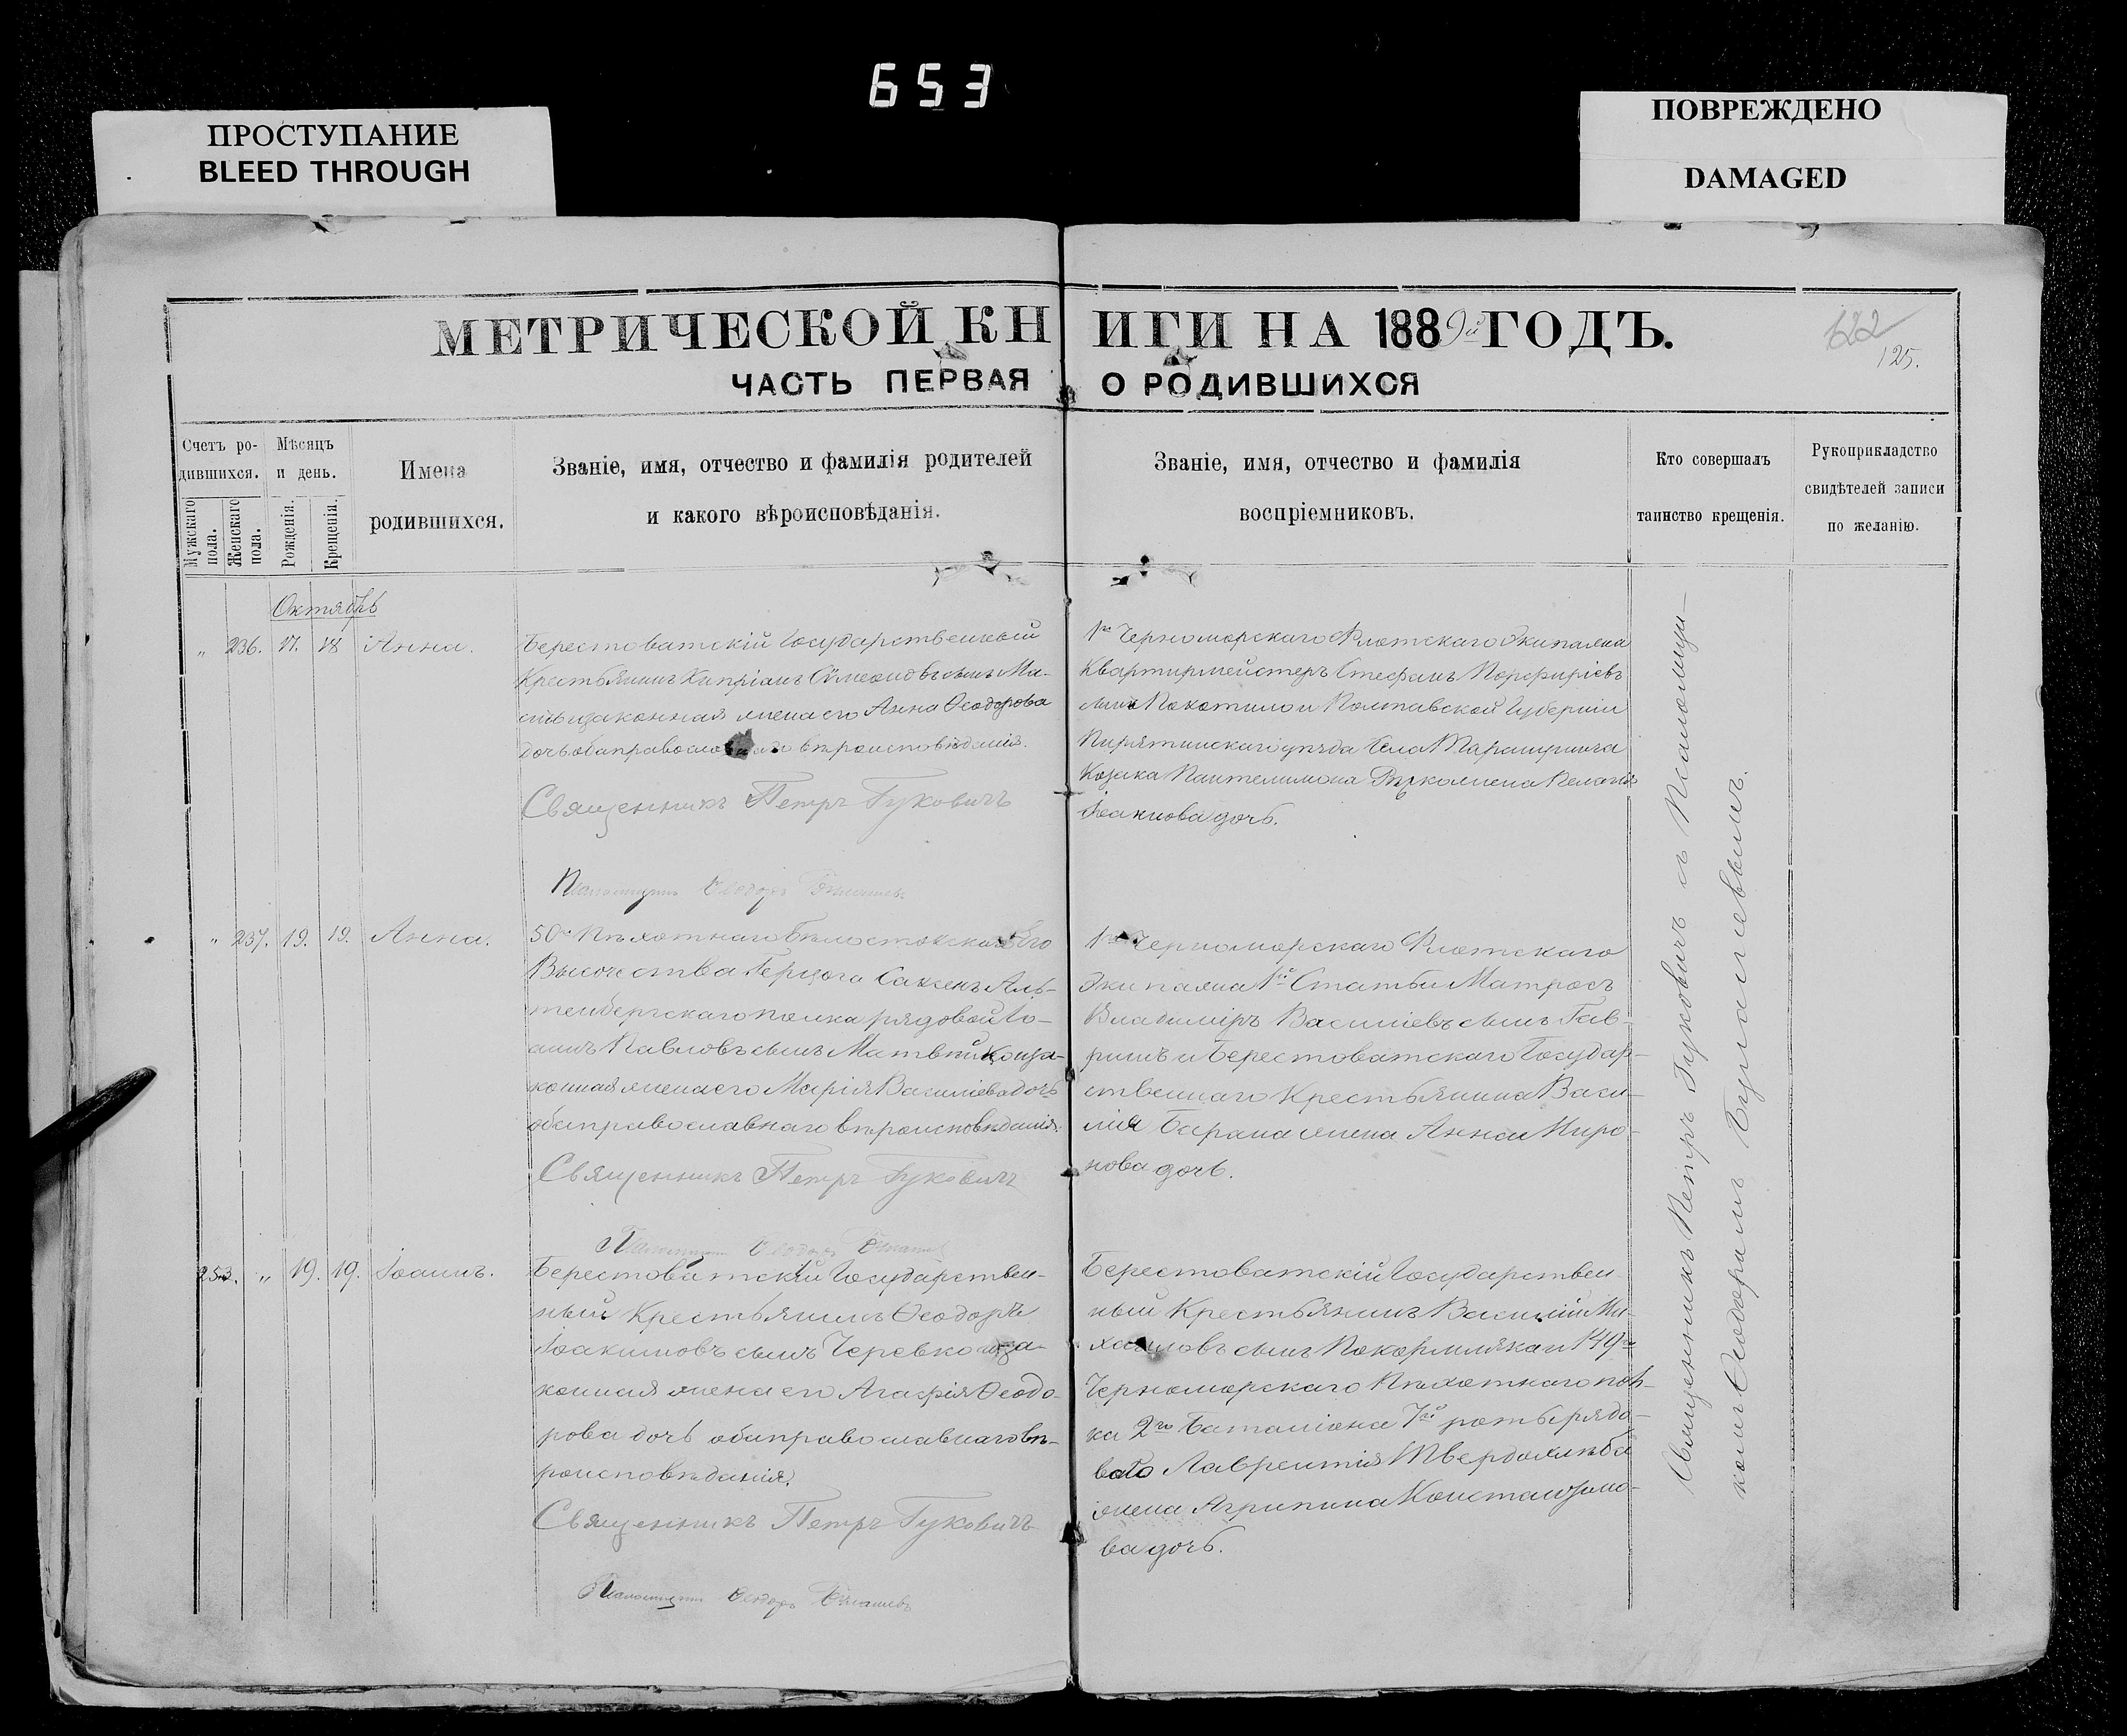 653
ПРОСТУПАНИЕ
BLEED THROUGH
ПОВРЕЖДЕНО
DAMAGED
МЕТРИЧЕСКОЙ КНИГИ НА 1889й ГОДЪ.
122
125.
ЧАСТЬ ПЕРВАЯ О РОДИВШИХСЯ
Счетъ ро-
дившихся.
Мужскаго пола.
Женскаго пола.
Мѣсяцъ
и день.
Рожденія.
Крещенія.
Имена
родившихся.
Званіе, имя, отчество и фамилія родителей
и какого вѣроисповѣданія.
Званіе, имя, отчество и фамилія
воспріемниковъ.
Кто совершалъ
таинство крещенія.
Рукоприкладство
свидѣтелей записи
по желанію.
Октябрь
„ 236. 17. 18 Анна.
Берестоватскій Государственный
Крестьянинъ Кипріанъ Сѵмеоновъ сынъ
законная жена его Анна Ѳеодорова
дочь оба православнаго вѣроисповѣданія.
Священникъ Петръ Гуковичъ
Псаломщикъ Ѳеодоръ
1го Черноморскаго Флотскаго Экипажа
Квартирмейстеръ Стефанъ Порфиріевъ
сынъ Покотило и Полтавской Губерніи
Пирятинскаго уѣзда Села
Козака Пантелимона жена Пелагія
Іоаннова дочь.
„ 237. 19. 19. Анна.
50го Пѣхотнаго Бѣлостокскаго Его
Высочества Герцога Саксенъ Аль-
тенбергскаго полка рядовой Іо-
аннъ Павловъ сынъ Матвѣйко и за-
конная жена его Марія Василіева дочь
оба православнаго вѣроисповѣданія.
Священникъ Петръ Гуковичъ
Псаломщикъ Ѳеодоръ
1го Черноморскаго Флотскаго
Экипажа 1й Статьи Матросъ
Владиміръ Василіевъ сынъ Гав-
ришъ и Берестоватскаго Государ-
ственнаго Крестьянина Васи-
лія Барана жена Анна Миро-
нова дочь.
253. „ 19. 19. Іоаннъ.
Берестоватскій Государствен-
ный Крестьянинъ Ѳеодоръ
Іоакимовъ сынъ Черевко и за-
конная жена его Агафія Ѳеодо-
рова дочь оба православнаго вѣ-
роисповѣданія.
Священникъ Петръ Гуковичъ
Псаломщикъ Ѳеодоръ
Берестоватскій Государствен-
ный Крестьянинъ Василій Ми-
хаиловъ сынъ Покормляка и 149го
Черноморскаго Пѣхотнаго пол-
ка 2го Баталіона 7й роты рядо-
ваго Лаврентія Твердохлѣба
жена Агрипина Константино-
ва дочь.
Священникъ Петръ Гуковичъ съ Псаломщи-
комъ Ѳеодоромъ